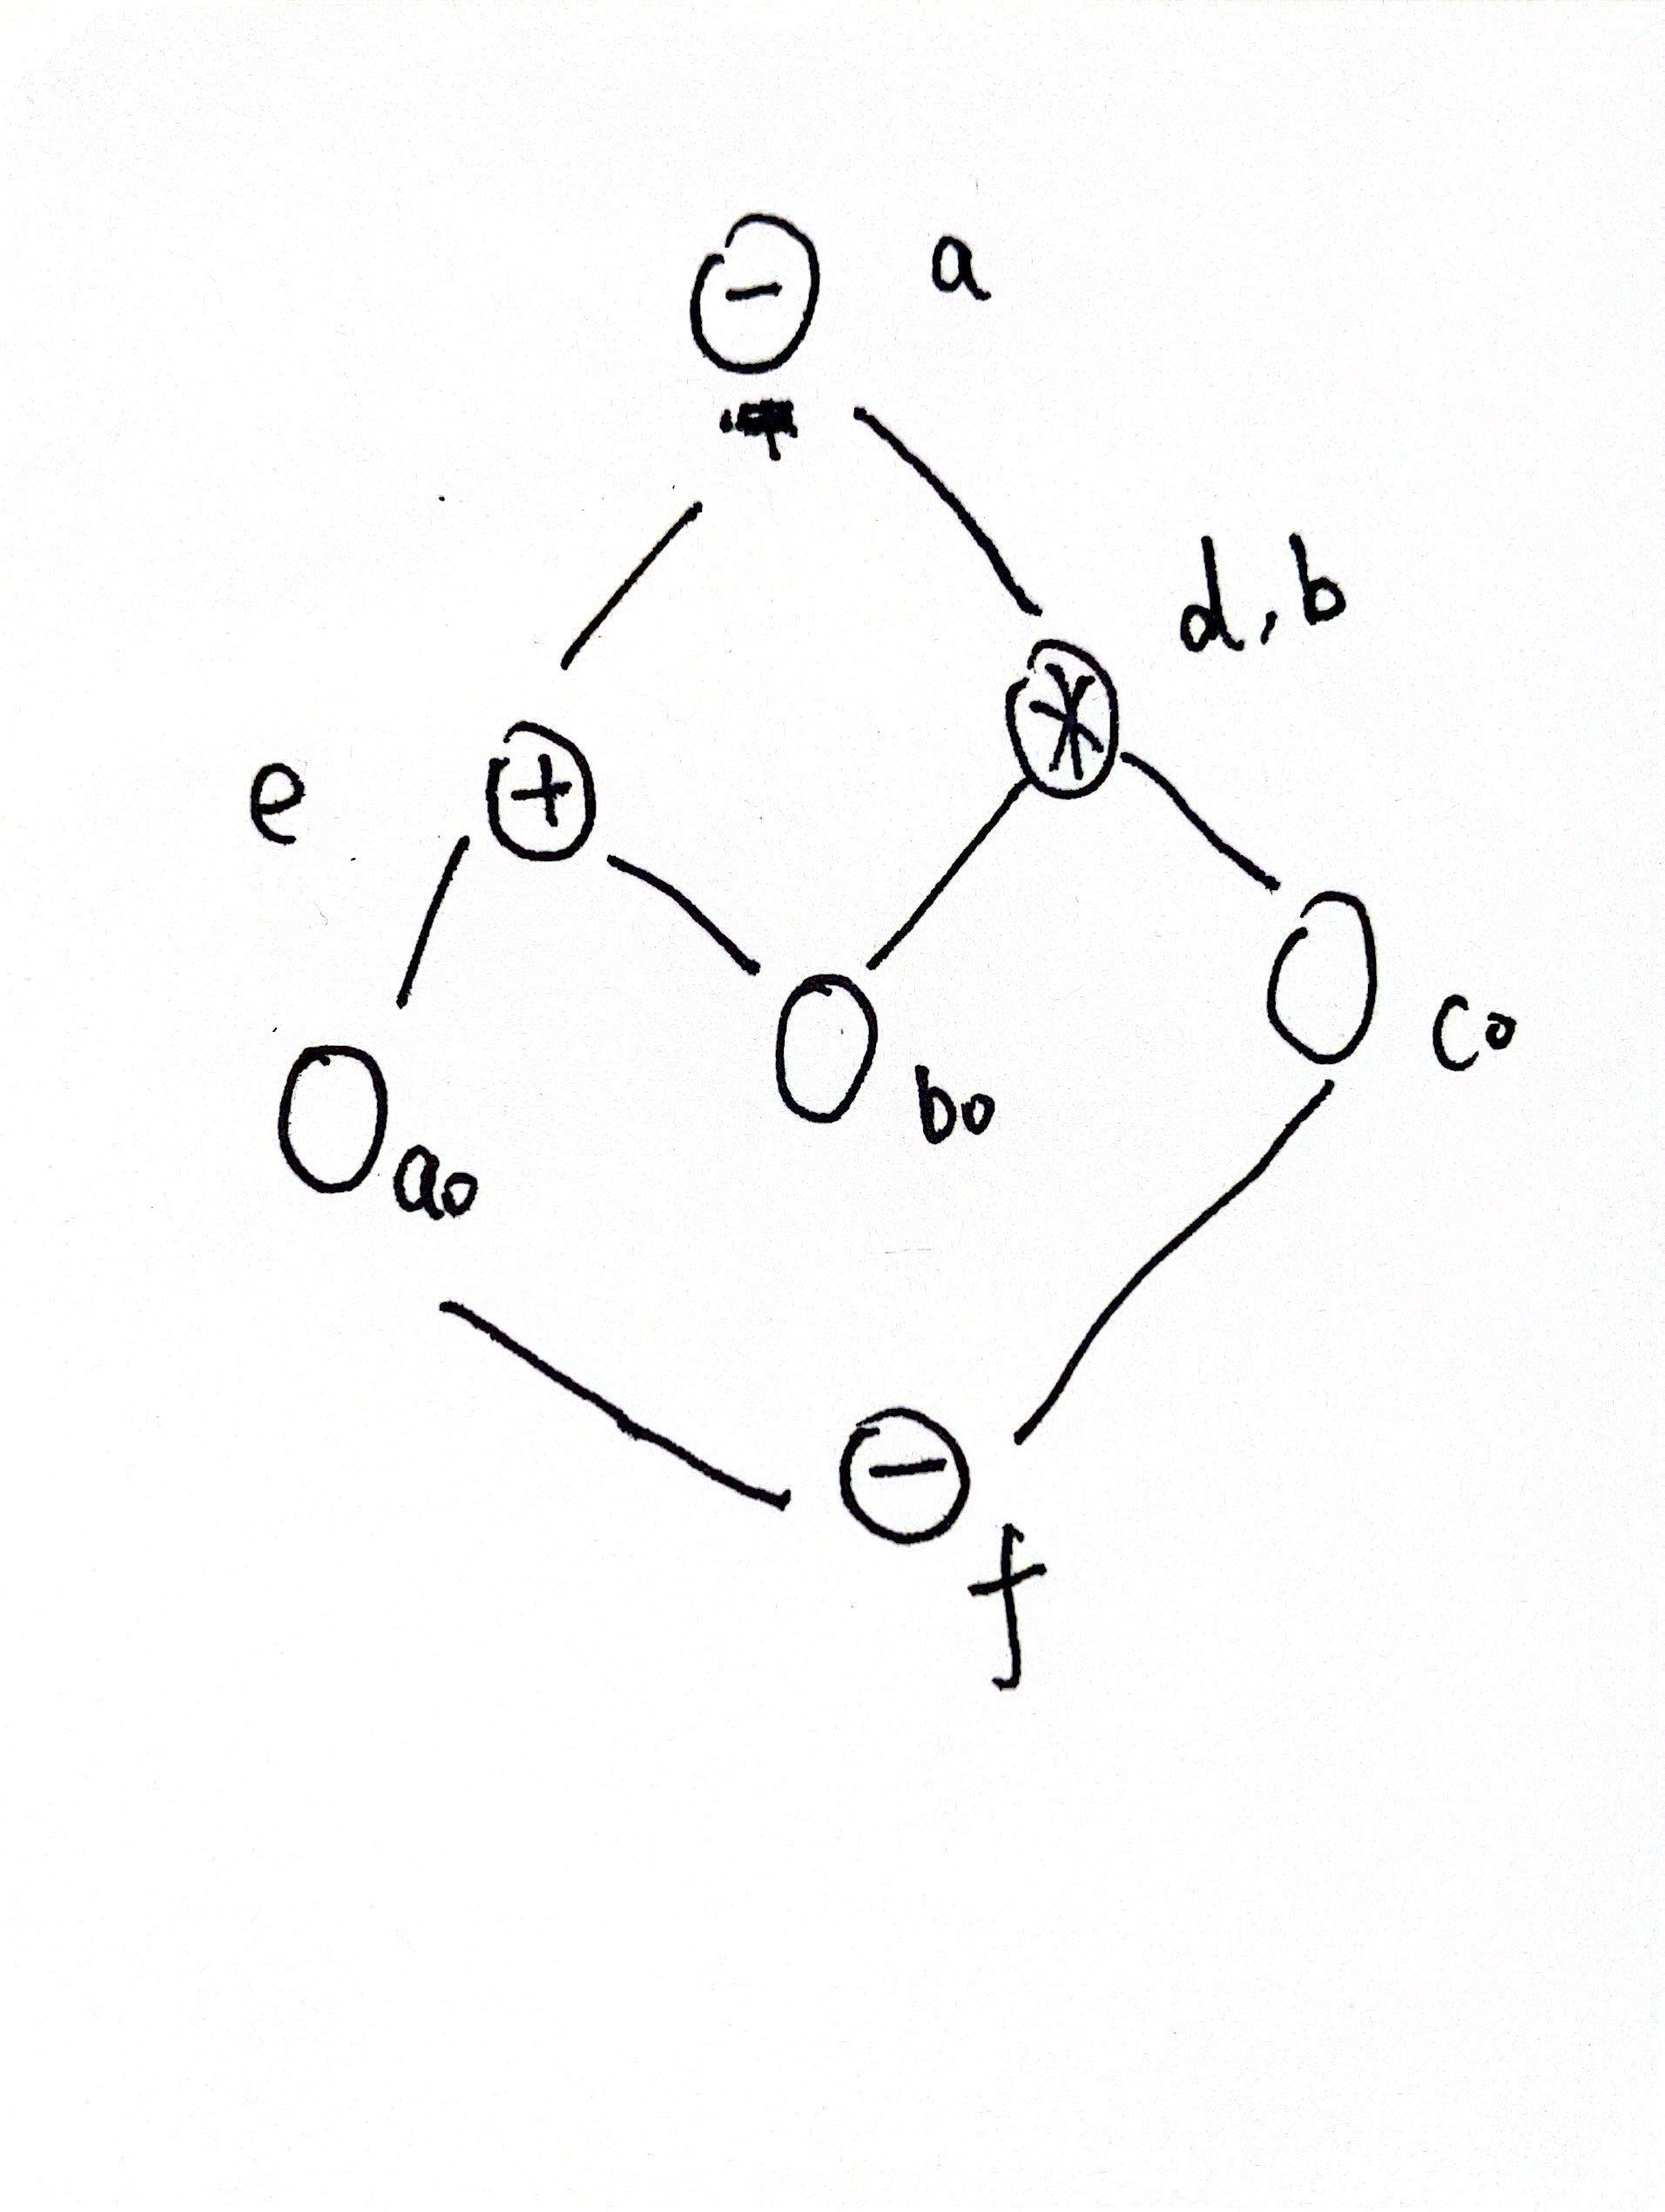 - a
d, b
e + *
c0
b0
a0
-
f